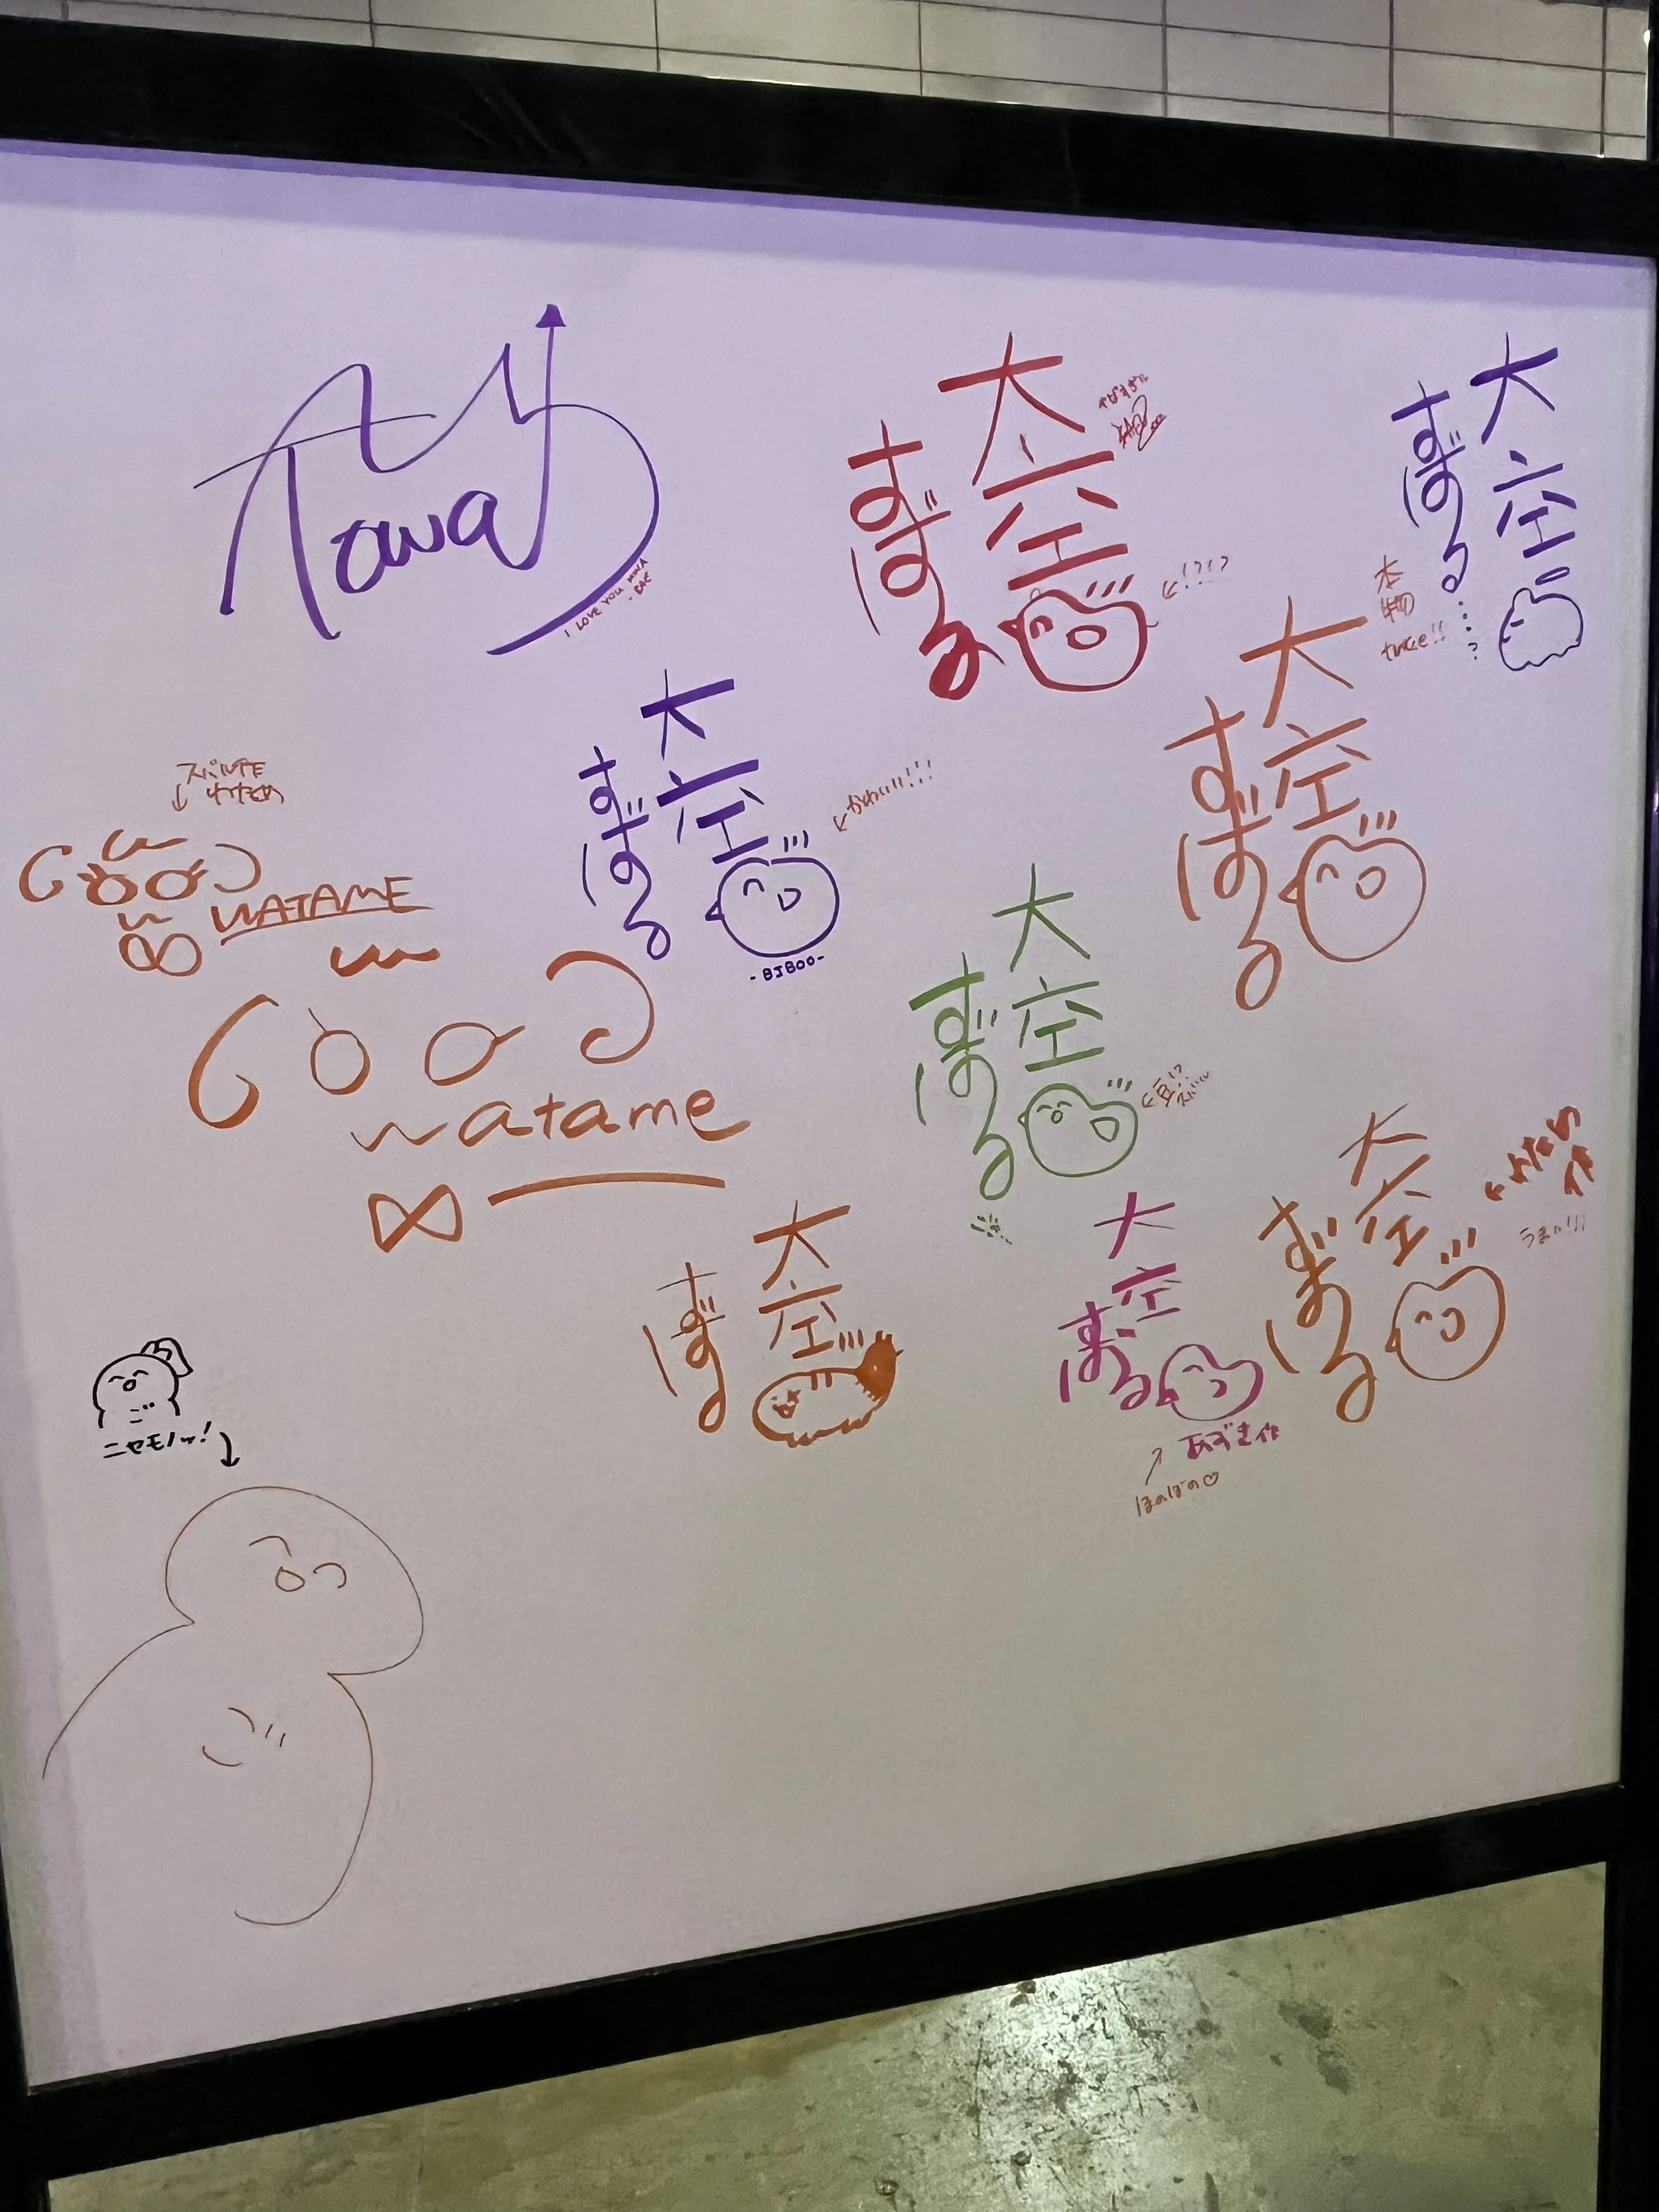 Towa
I LOVE YOU MINA
- BAE
大空
すばる
←!?!?
大空
すばる
・・・・?
本物
twice!!
大空
すばる
大空
すばる
←かわいい!!!
-BIBOO-
スバル作
わため
↓
WATAME
watame
大空
すばる
←豆!?
スバル
大空
すばる
大空
すばる
あずき作
↑
ほのぼの♡
大空
すばる
←わため
作
うまい!!!
ニセモノッ!
↓